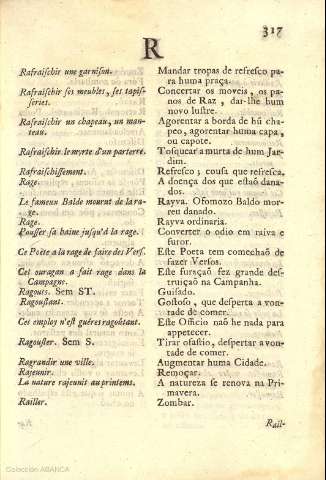 317
R
Rafraiſchir une garniſon.
Mandar tropas de refreſco pa-
ra huma praça.
Rafraiſchir ſes meubles, ſes tapiſ-
ſeries.
Concertar os moveis, os pa-
nos de Raz, dar-lhe hum
novo luſtre.
Rafraiſchir un chapeau, un man-
teau.
Agorentar a borda de hũ cha-
peo, agorentar huma capa,
ou capote.
Rafraiſchir le myrte d'un parterre.
Toſquear a murta de hum Jar-
dim.
Rafraiſchiſſement.
Refreſco, couſa que refreſca.
Rage.
A doença dos que eſtaõ dana-
dos.
Le fameux Balde mourut de la ra-
ge.
Rayva. Ofomozo Baldo mor-
reu danado.
Rage.
Rayva ordinaria.
Pouſſer ſa haine juſqu'à la rage.
Converter o odio em raiva e
furor.
Ce Poëte a la rage de faire des Verſ.
Eſte Poeta tem comechaõ de
fazer Verſos.
Cet ouragan a fait rage dans la
Campagne.
Eſte furaçaõ fez grande deſ-
truiçaõ na Campanha.
Ragouts. Sem ST.
Guiſado.
Ragouſtant.
Goſtoſo, que deſperta a von-
tade de comer.
Cet employ n'eſt guéres ragoûtant.
Eſte Officio naõ he nada para
appetecer.
Ragouſter. Sem S.
Tirar ofaſtio, deſpertar a von-
tade de comer.
Ragrandir une ville.
Augmentar huma Cidade.
Rajeunir.
Remoçar.
La nature rajeunit au printems.
A natureza ſe renova na Pri-
mavera.
Railler.
Zombar.
Rail-
Colección ABANCA